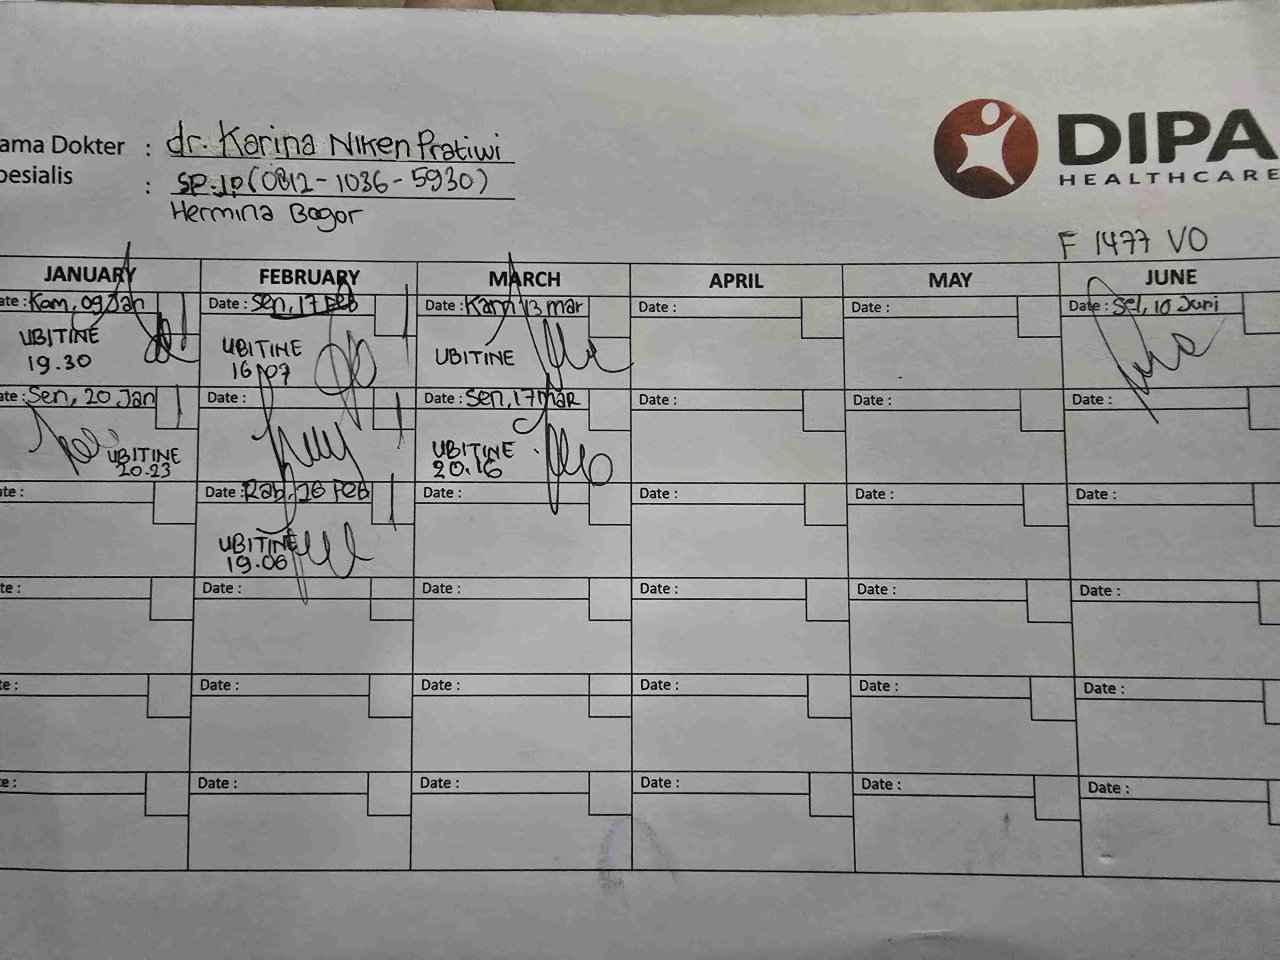 ama Dokter : dr. Karina Niken Pratiwi
pesialis : SP.JP (0812-1036-5930)
Hermina Bogor
DIPA
HEALTHCARE
F 1477 VO
JANUARY FEBRUARY MARCH APRIL MAY JUNE
ate : Kam, 09 Jan Date : Sen, 17 Feb Date : Kam 13 mar Date : Date : Date : Sel, 10 Juni
UBITINE UBITINE UBITINE
19.30 16.07
ate : Sen, 20 Jan Date : Date : Sen, 17 mar Date : Date : Date :
UBITINE UBITINE
20.23 20.16
te : Date : Rab, 26 Feb Date : Date : Date : Date :
UBITINE
19.06
te : Date : Date : Date : Date : Date :
te : Date : Date : Date : Date : Date :
e : Date : Date : Date : Date : Date :